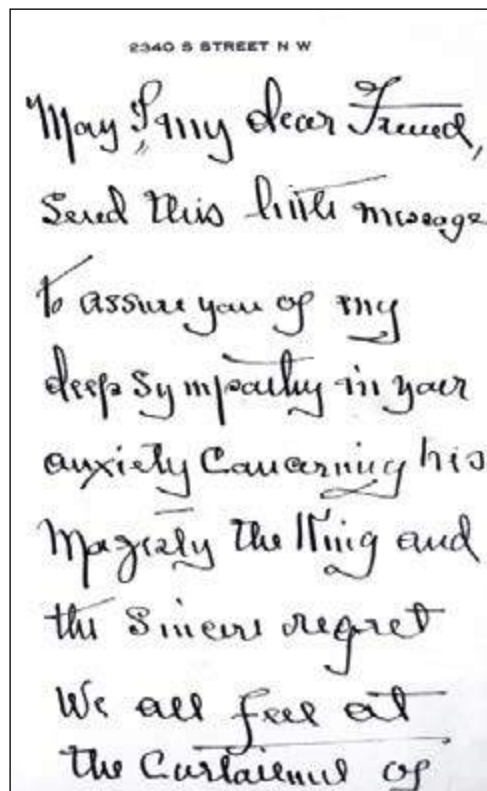 2340 S STREET N W
May I, my dear Friend,
Send this little message
to assure you of my
deep sympathy in your
anxiety concerning his
Majesty the King and
the sincere regret
We all feel at
the Curtailment of